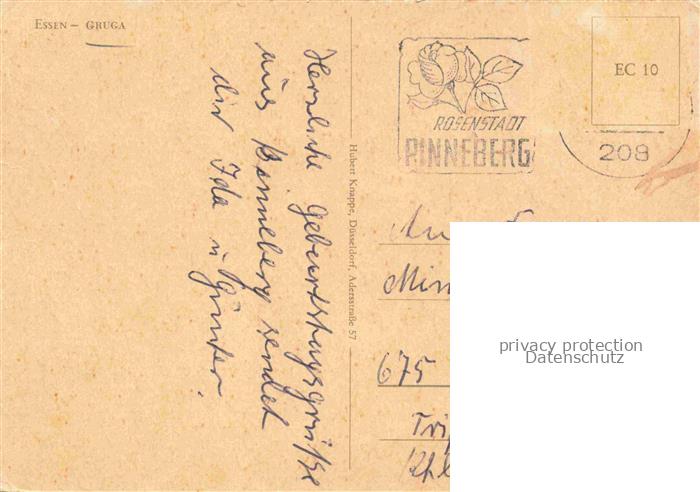 ESSEN – GRUGA
Herzliche Geburtstagsgrüße
aus Pinneberg sendet
dir Ida u. Günter.
Hubert Knappe, Düsseldorf, Adersstraße 57
ROSENSTADT
PINNEBERG
EC 10
208
An
675
privacy protection
Datenschutz